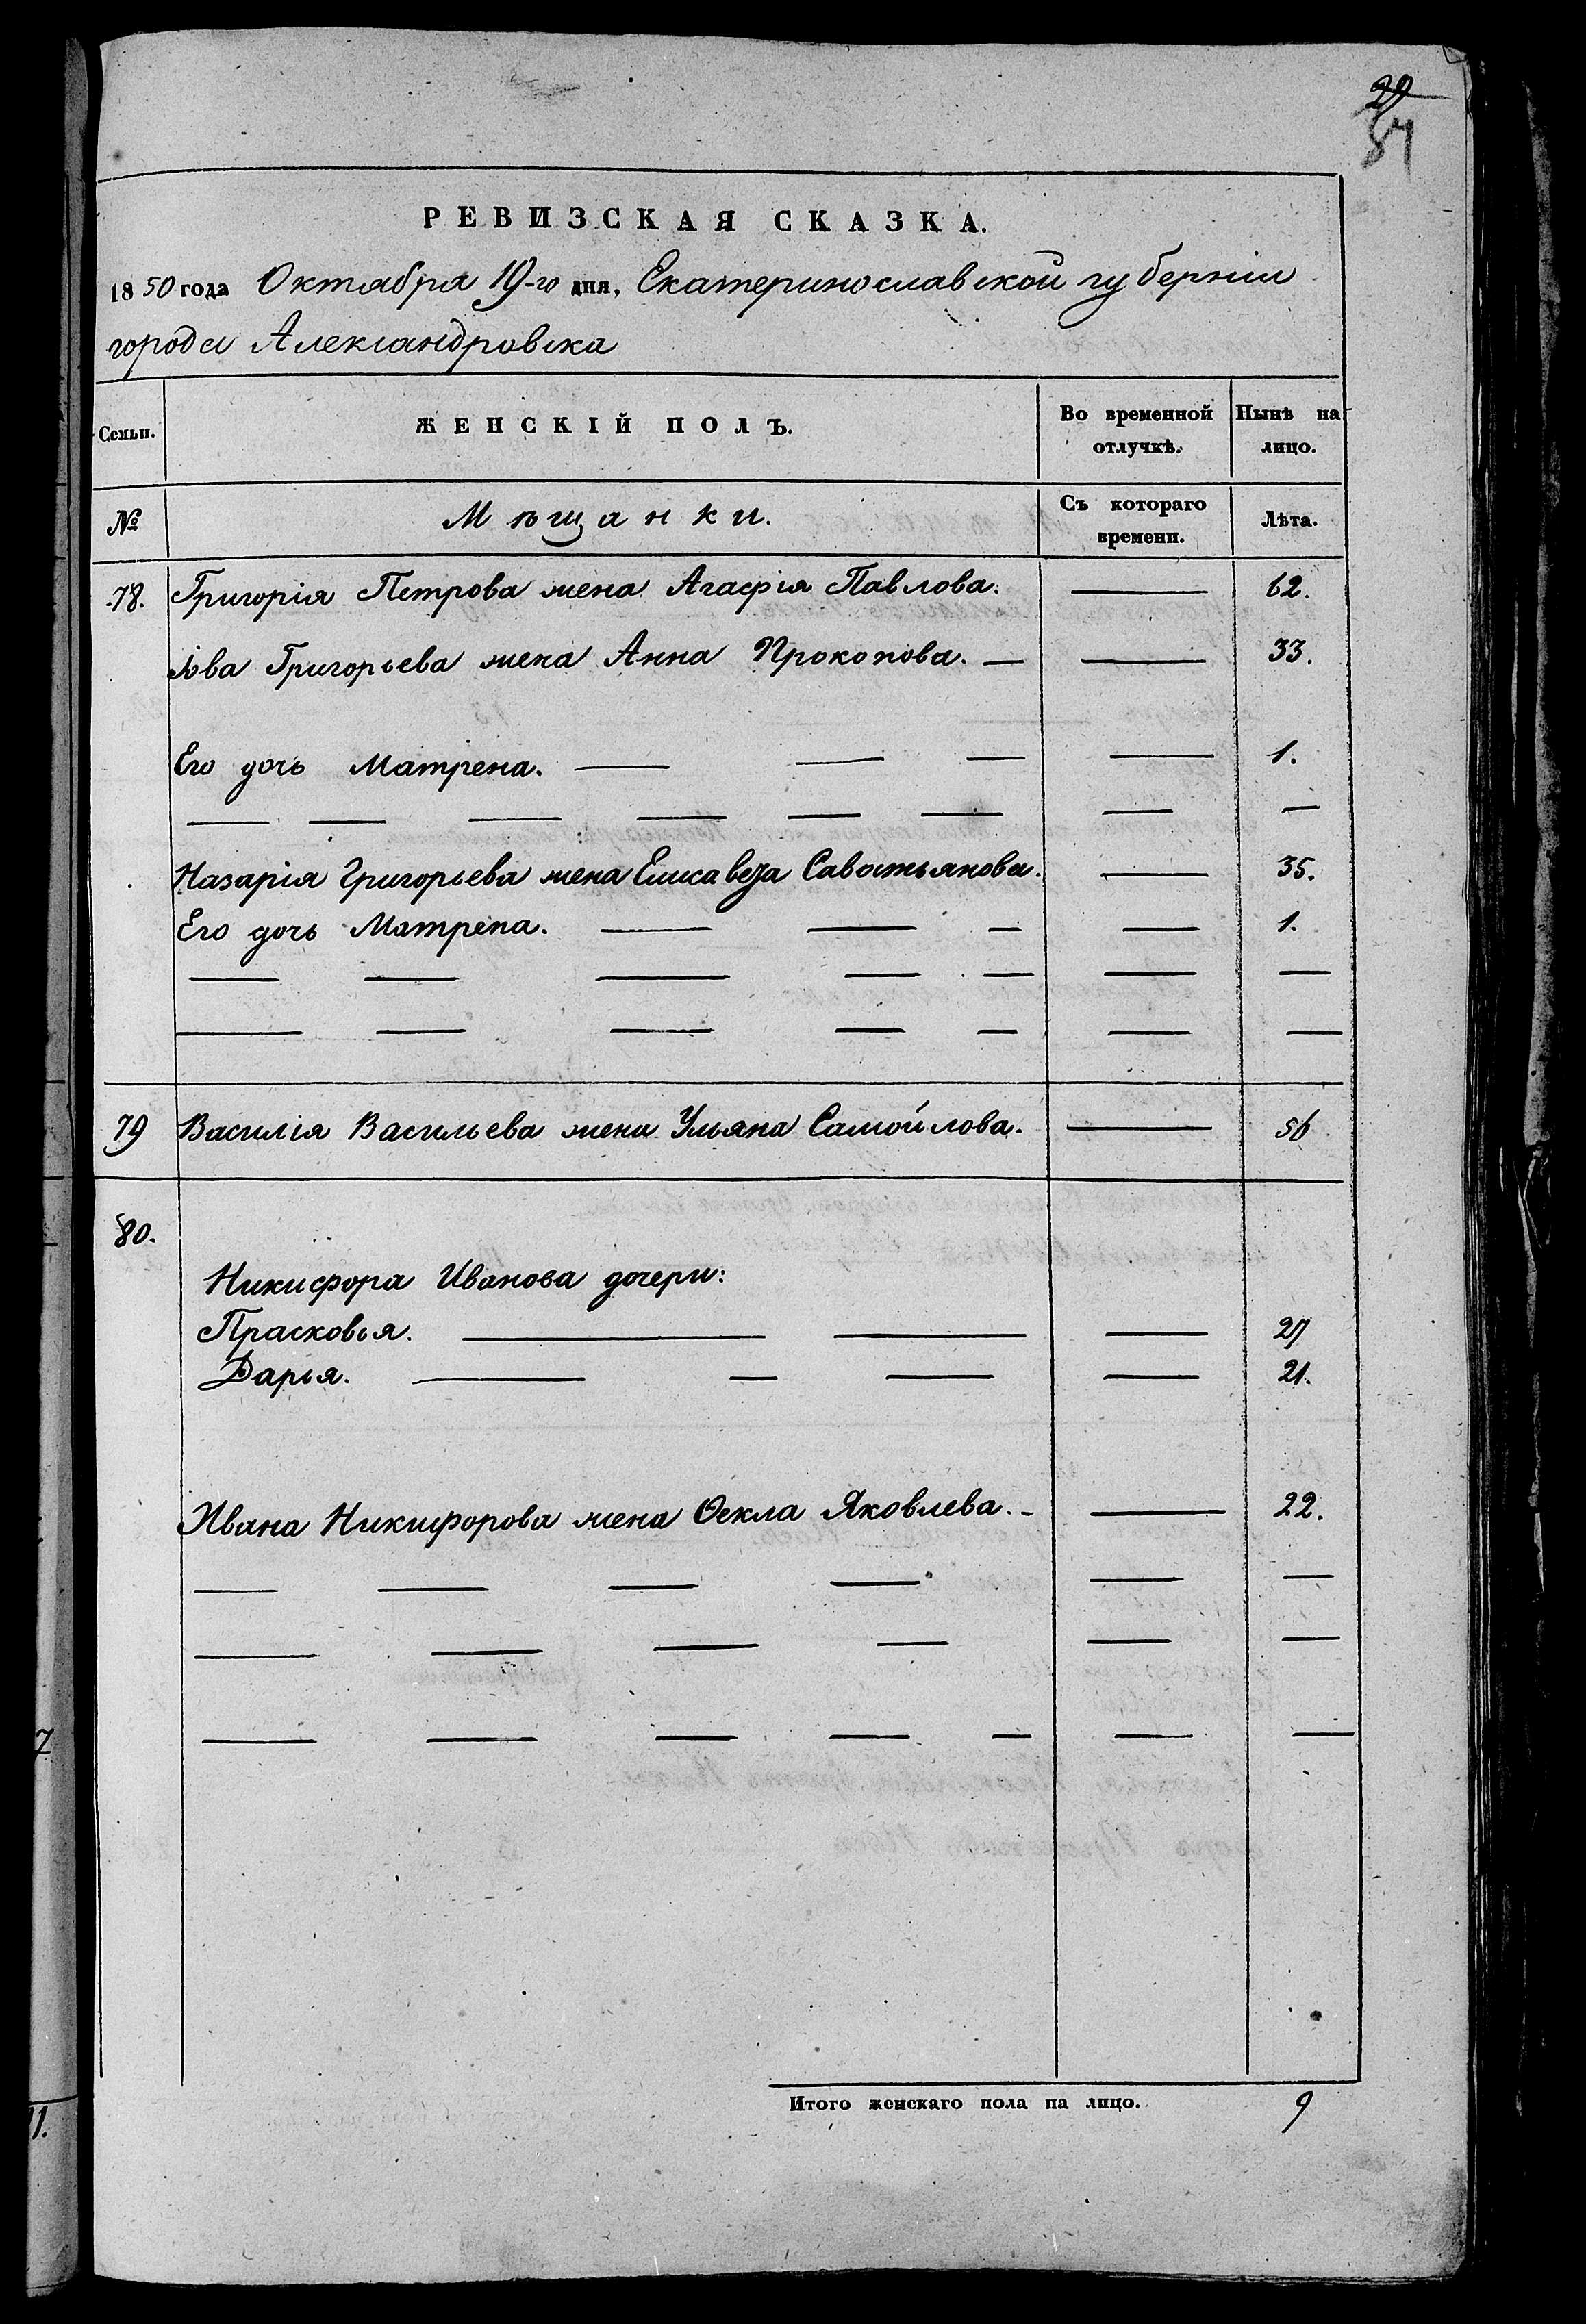 29
84
РЕВИЗСКАЯ СКАЗКА.
1850 года Октября 19-го дня, Екатеринославской губерніи
города Александровска
Семьи.
ЖЕНСКІЙ ПОЛЪ.
Во временной отлучкѣ.
Нынѣ на лицо.
№
Мѣщанки.
Съ котораго времени.
Лѣта.
78. Григорія Петрова жена Агафія Павлова. — 62.
Іова Григорьева жена Анна Прокопова. — — 33.
Его дочь Матрена. — — — — 1.
— — — — — — — —
Назарія Григорьева жена Елисавета Савостьянова. — 35.
Его дочь Матрена. — — — — 1.
— — — — — — —
— — — — — — —
79 Василія Васильева жена Ульяна Самойлова. — 56
80.
Никифора Иванова дочери:
Прасковья. — — — 27
Дарья. — — — — 21.
Ивана Никифорова жена Ѳекла Яковлева. - — 22.
— — — — — —
— — — — — —
— — — — — — —
Итого женскаго пола на лицо. 9
7
11.